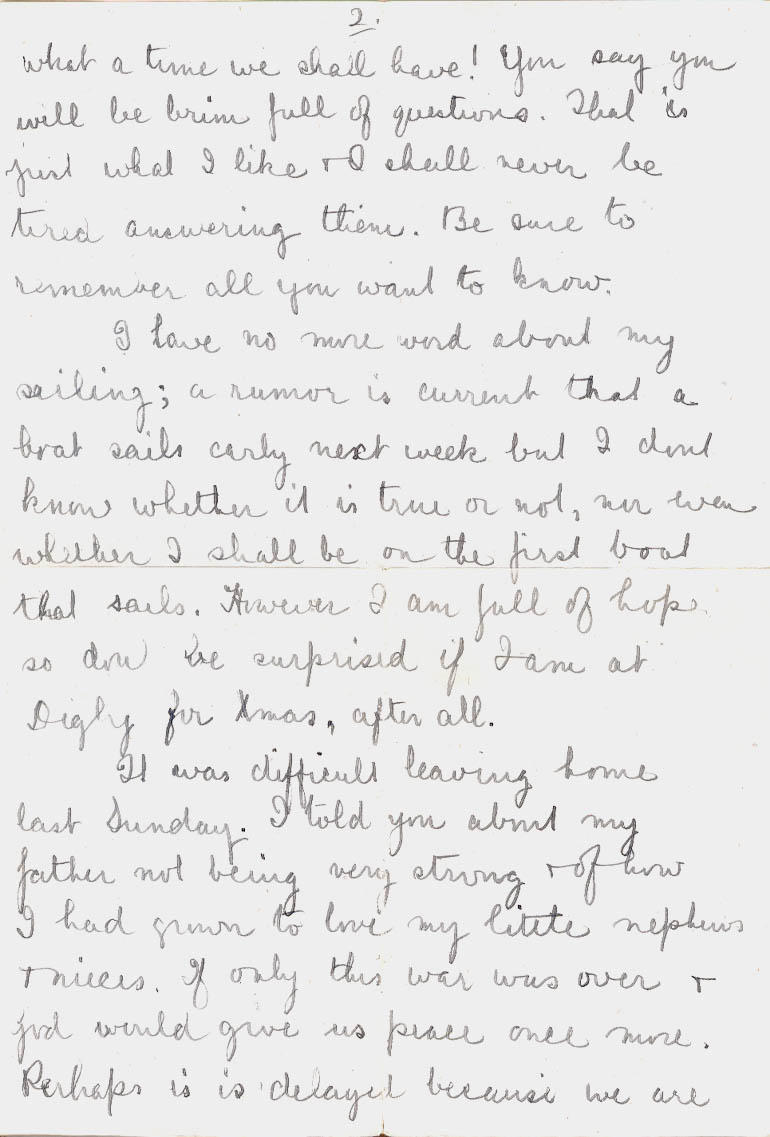 2.
what a time we shall have! You say you
will be brim full of questions. That is
just what I like + I shall never be
tired answering them. Be sure to
remember all you want to know.
I have no more word about my
sailing; a rumor is current that a
boat sails early next week but I dont
know whether it is true or not, nor even
whether I shall be on the first boat
that sails. However I am full of hope
so don't be surprised if I am at
Digby for Xmas, after all.
It was difficult leaving home
last Sunday. I told you about my
father not being very strong + of how
I had grown to love my little nephews
+ nieces. If only this war was over +
god would give us peace once more.
Perhaps is is delayed because we are